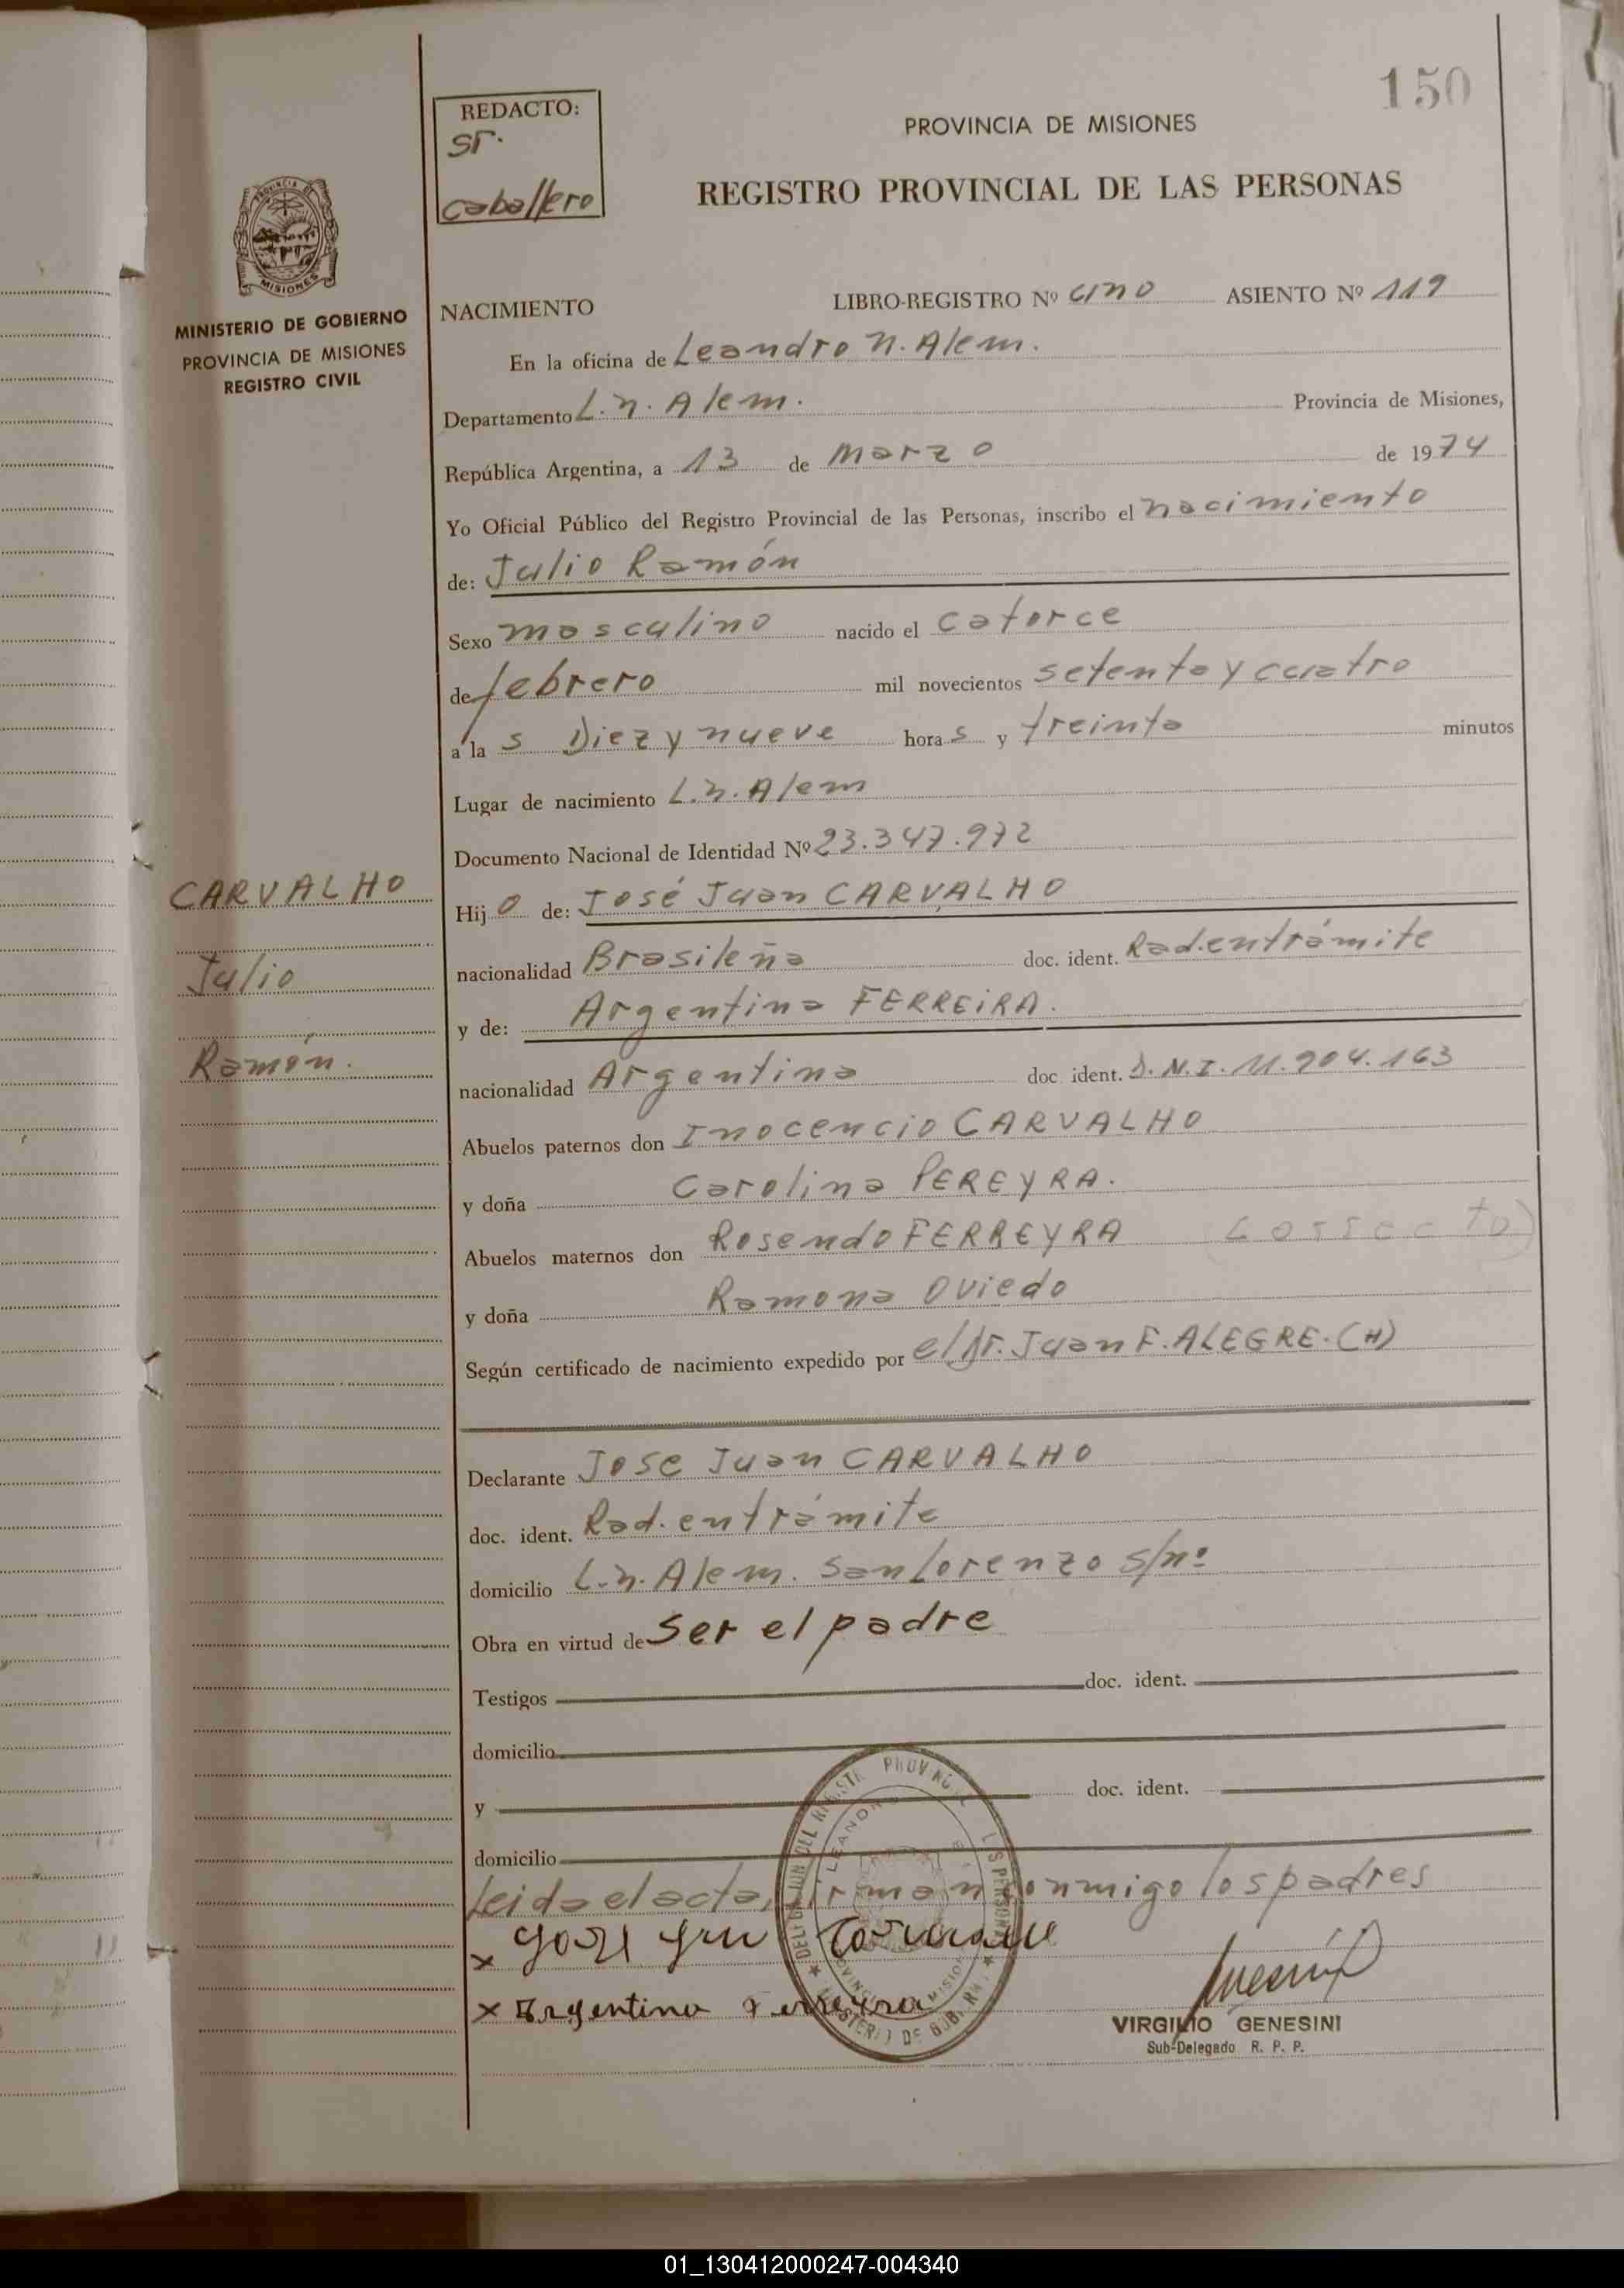 150
REDACTO:
sr.
caballero
PROVINCIA DE MISIONES
REGISTRO PROVINCIAL DE LAS PERSONAS
MISIONES
MINISTERIO DE GOBIERNO
PROVINCIA DE MISIONES
REGISTRO CIVIL
NACIMIENTO LIBRO-REGISTRO Nº uno ASIENTO Nº 119
En la oficina de Leandro N. Alem.
Departamento L. N. Alem. Provincia de Misiones,
República Argentina, a 13 de marzo de 1974
Yo Oficial Público del Registro Provincial de las Personas, inscribo el nacimiento
de: Julio Ramón
Sexo masculino nacido el catorce
de febrero mil novecientos setenta y cuatro
a la s Diez y nueve hora s y treinta minutos
Lugar de nacimiento L.N. Alem
Documento Nacional de Identidad Nº 23.347.972
CARVALHO
Julio
Ramón.
Hij o de: José Juan CARVALHO
nacionalidad Brasileña doc. ident. Rad. en trámite
y de: Argentina FERREiRA.
nacionalidad Argentina doc. ident. D.N.I. 11.904.163
Abuelos paternos don Inocencio CARVALHO
y doña Carolina PEREYRA.
Abuelos maternos don Rosendo FERREYRA
y doña Ramona Oviedo
Según certificado de nacimiento expedido por el Dr. Juan F. ALEGRE. (H)
Declarante Jose Juan CARVALHO
doc. ident. Rad. en trámite
domicilio L.N. Alem. San Lorenzo s/nº
Obra en virtud de ser el padre
Testigos doc. ident.
domicilio
y doc. ident.
domicilio
Leida el acta, firman conmigo los padres
x
x Argentina Ferreyra
VIRGILIO GENESINI
Sub-Delegado R. P. P.
01_130412000247-004340